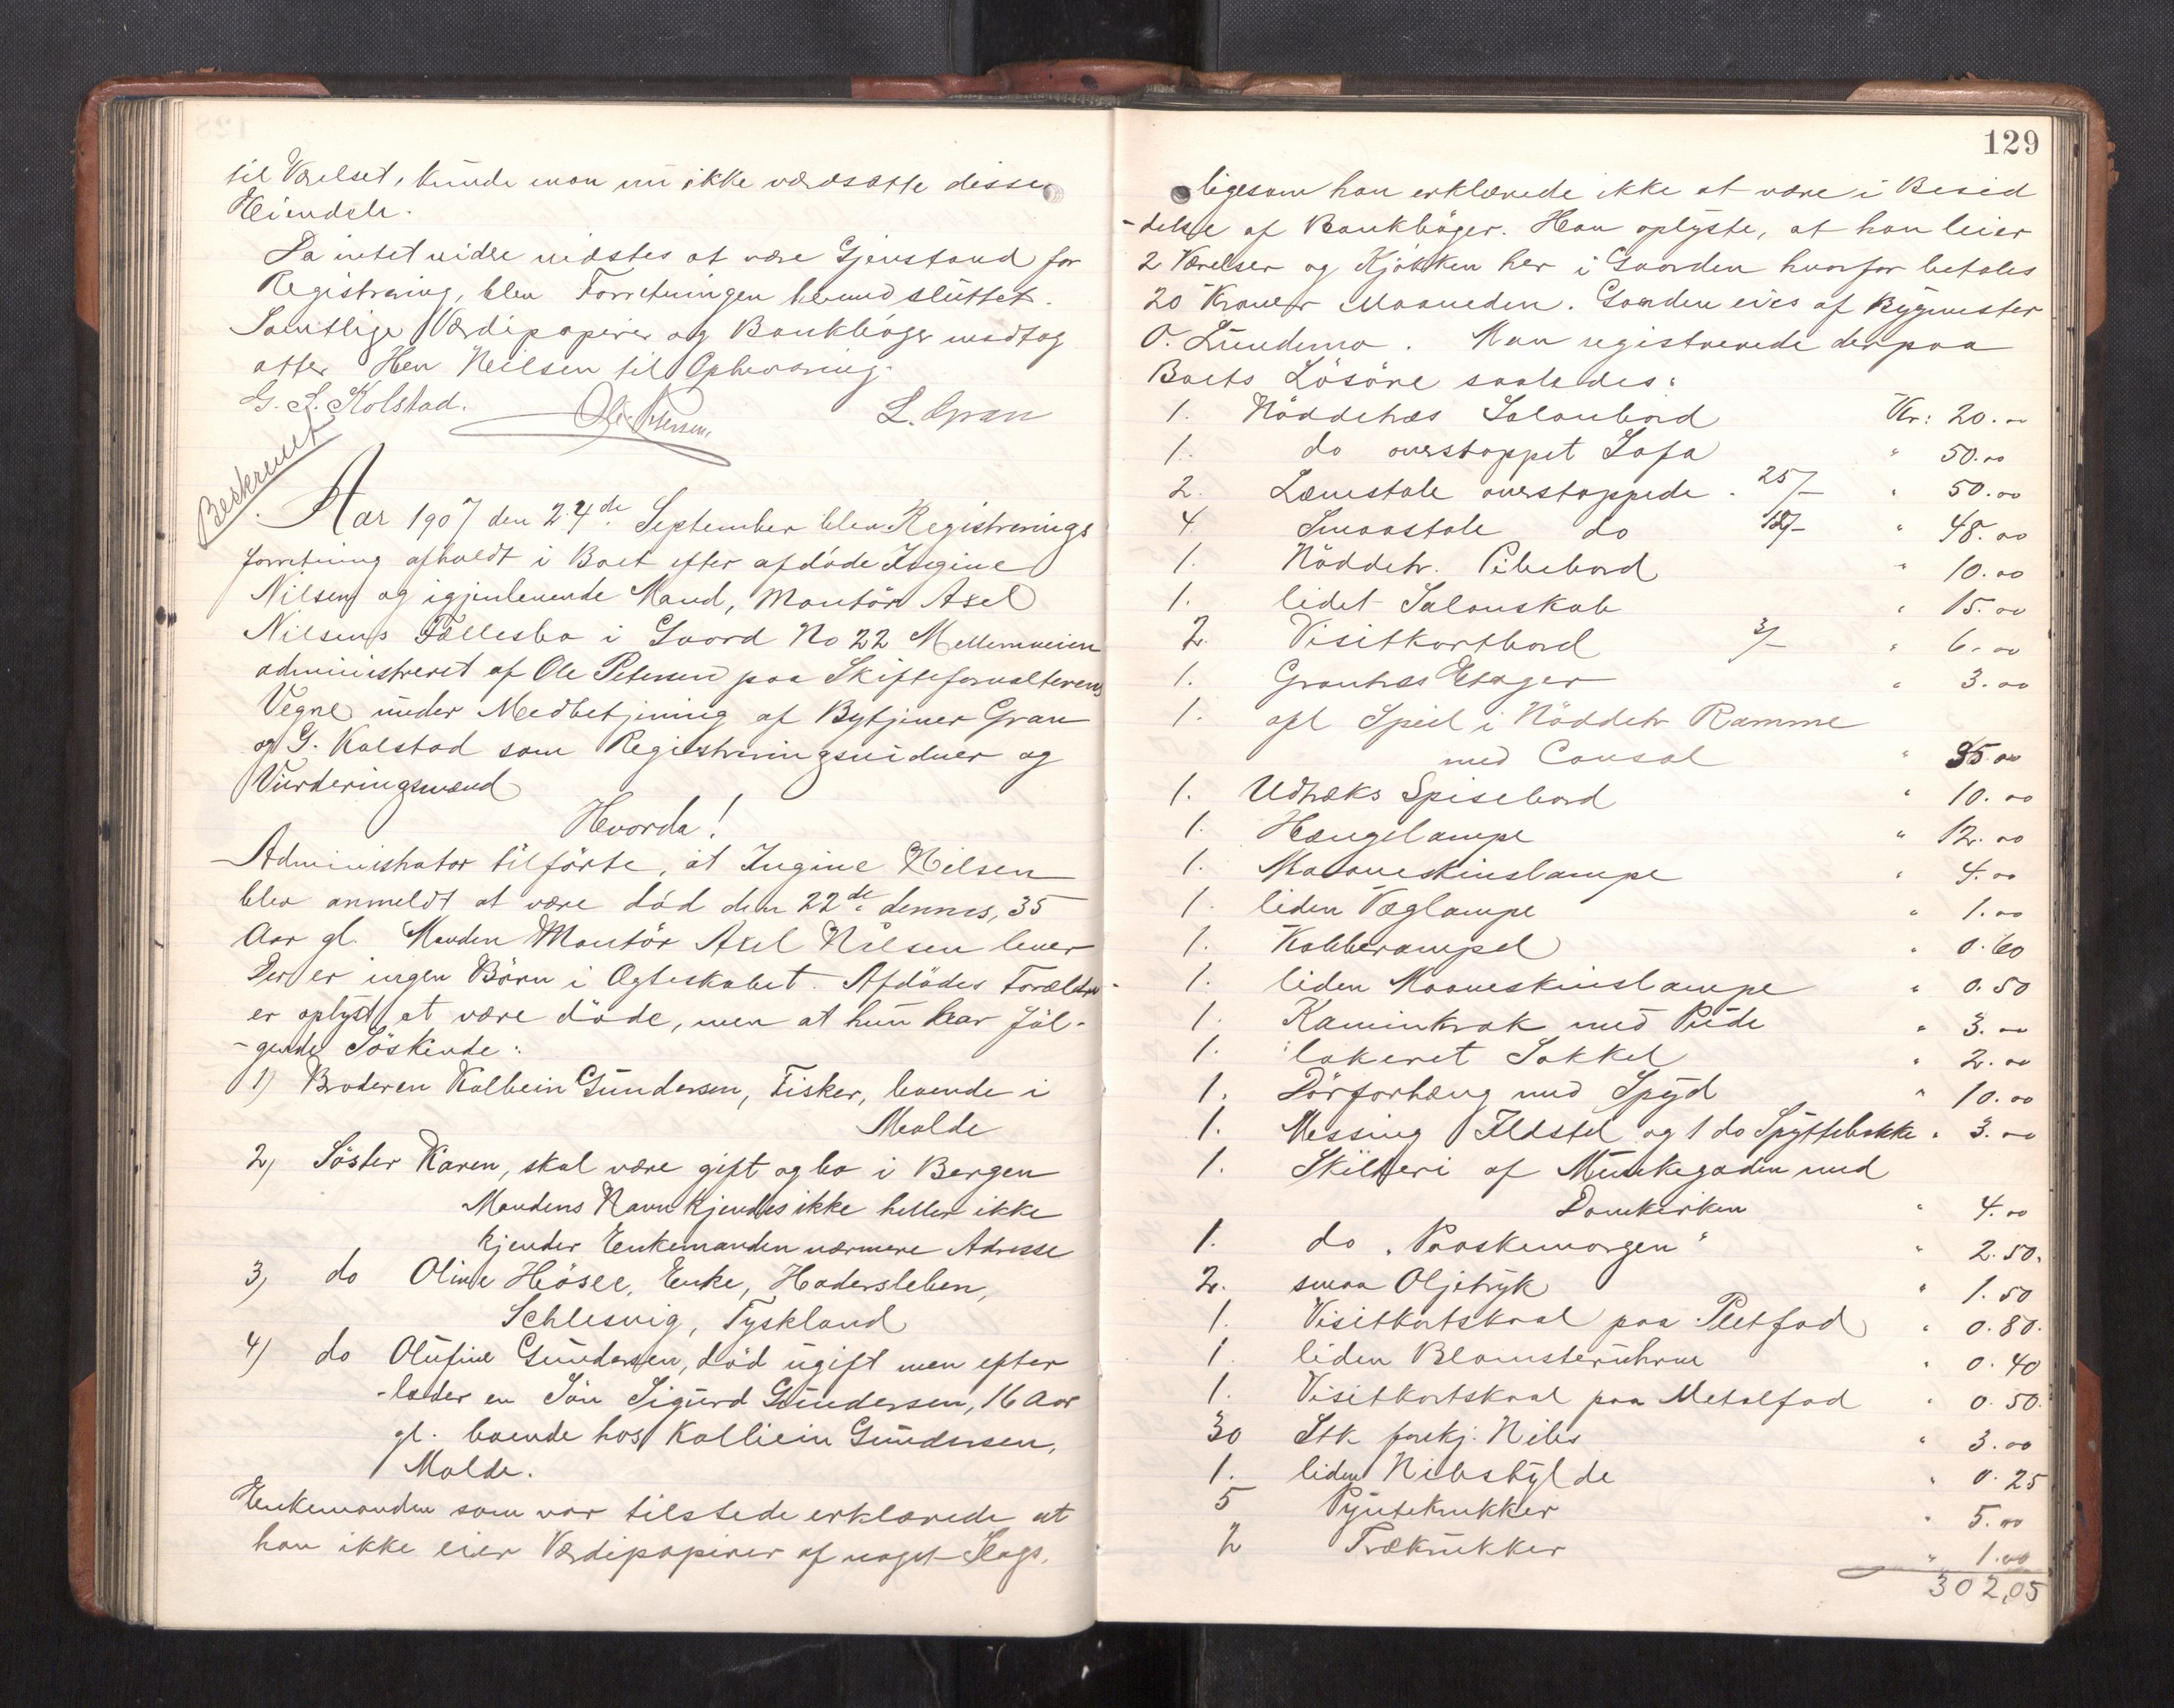 til Værelset, kunde man nu ikke værdsætte disse
Eiendele.
Da intet videre vidstes at være Gjenstand for
Registrering, blev Forretningen hermed sluttet.
Samtlige Værdipapirer og Bankbøger modtog
atter Herr Neilsen til Opbevaring.
G. S. Kolstad. Ole Petersen. L. Gran
Beskrevet
Aar 1907 den 24de September blev Registrerings
forretning afholdt i Boet efter afdøde Ingine
Nilsen og igjenlevende Mand, Montör Axel
Nilsens Fællesbo i Gaard No 22 Mellemveien
administreret af Ole Petersen paa Skifteforvalterens
Vegne under Medbetjening af Bytjener Gran
og G. Kolstad som Registreringsvidner og
Vurderingsmænd
Hvorda!
Administrator tilförte, at Ingine Nilsen
blev anmeldt at være død den 22de dennes, 35
Aar gl. Manden Montör Axel Nilsen lever
Der er ingen Börn i Ægteskabet. Afdödes Forældre
er oplyst at være döde, men at hun har föl-
-gende Söskende:
1) Broderen Kolbein Gundersen, Fisker, boende i
Molde
2) Söster Karen, skal være gift og bo i Bergen
Mandens Navn kjendes ikke heller ikke
kjender Enkemanden nærmere Adresse
3) do Oline Höser, Enke, Hadersleben,
Schlesvig, Tyskland
4) do Olufine Gundersen, död ugift men efter
-lader en Sön Sigurd Gundersen, 16 Aar
gl. boende hos Kolbein Gundersen,
Molde.
Enkemanden som var tilstede erklærede at
han ikke eier Værdipapirer af noget Slags,
129
ligesom han erklærede ikke at være i Besid
-delse af Bankbøger. Han oplyste, at han leier
2 Værelser og Kjökken her i Gaarden hvorfor betales
20 Kroner Maaneden. Gaarden eies af Bygmester
O. Lundemo. Man registrerede derpaa
Boets Lösöre saaledes:
1. Nöddetræs Salonbord Kr: 20.00
1. do overstoppet Sofa " 50.00
2. Lænestole overstoppede. 25/- " 50.00
4. Smaastole do 12/- " 48.00
1. Nöddetr. Pibebord " 10.00
1. lidet Salonskab " 15.00
2. Visitkortbord 3/- " 6.00
1. Grantræs Etager " 3.00
1. gl Speil i Nöddetr Ramme
med Consol " 35.00
1. Udtræks Spisebord " 10.00
1. Hængelampe " 12.00
1. Maaneskinslampe " 4.00
1. liden Væglampe " 1.00
1. Kobberampel " 0.60
1. liden Maaneskinslampe " 0.50
1. Kaminkrak med Pude " 3.00
1. lakeret Sokkel " 2.00
1. Dörforhæng med Spyd " 10.00
1. Messing Ildstel og 1 do Spyttebakke " 3.00
1. Skilderi af Munkegaden med
Domkirken " 4.00
1. do "Paaskemorgen" " 2.50.
2. smaa Oljetryk " 1.50
1. Visitkortskaal paa Pletfod " 0.80.
1. liden Blomsterurne " 0.40
1. Visitkortskaal paa Metalfod " 0.50.
30 Stk forskj. Nibs " 3.00
1. liden Nibshylde " 0.25
5 Pyntekrukker " 5.00
2 Trækrukker " 1.00
302,05